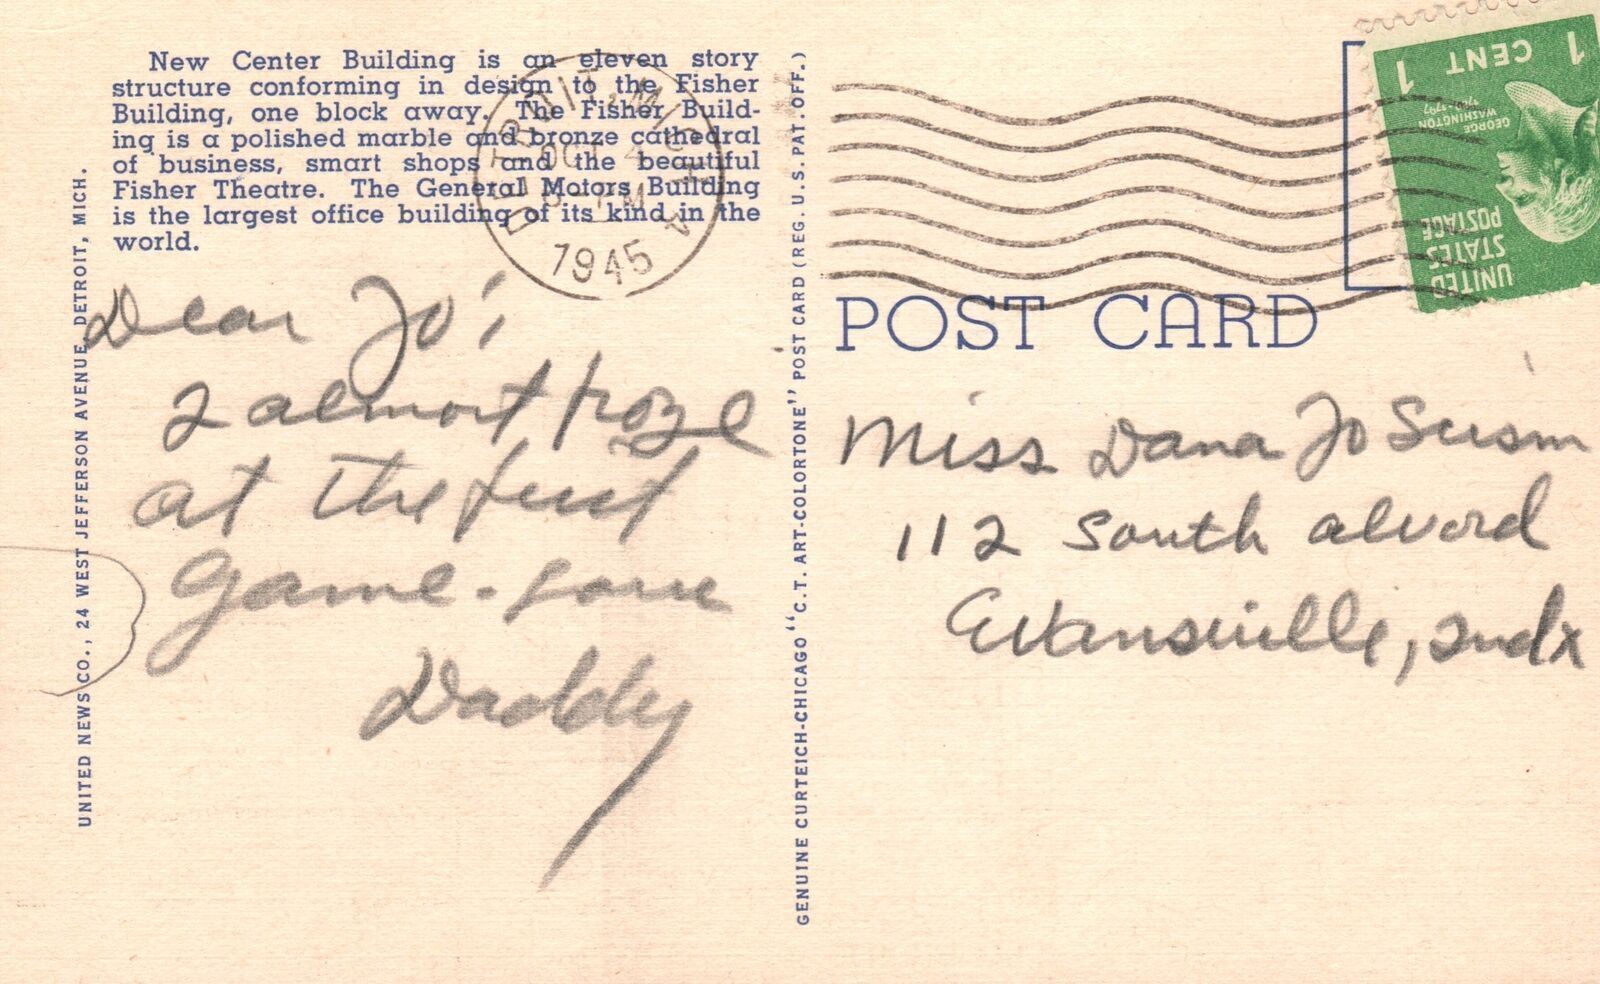 New Center Building is an eleven story
structure conforming in design to the Fisher
Building, one block away. The Fisher Build-
ing is a polished marble and bronze cathedral
of business, smart shops and the beautiful
Fisher Theatre. The General Motors Building
is the largest office building of its kind in the
world.
DETROIT, 2 MICH
OCT 4
PM
1945
UNITED NEWS CO., 24 WEST JEFFERSON AVENUE, DETROIT, MICH.
Dear Jo;
I almost froze
at the first
game - Love
Daddy
GENUINE CURTEICH-CHICAGO "C.T. ART-COLORTONE" POST CARD (REG. U.S. PAT. OFF.)
1 CENT 1
GEORGE
WASHINGTON
UNITED
STATES
POSTAGE
POST CARD
Miss Dana Jo
112 South Alvord
Evansville, Ind